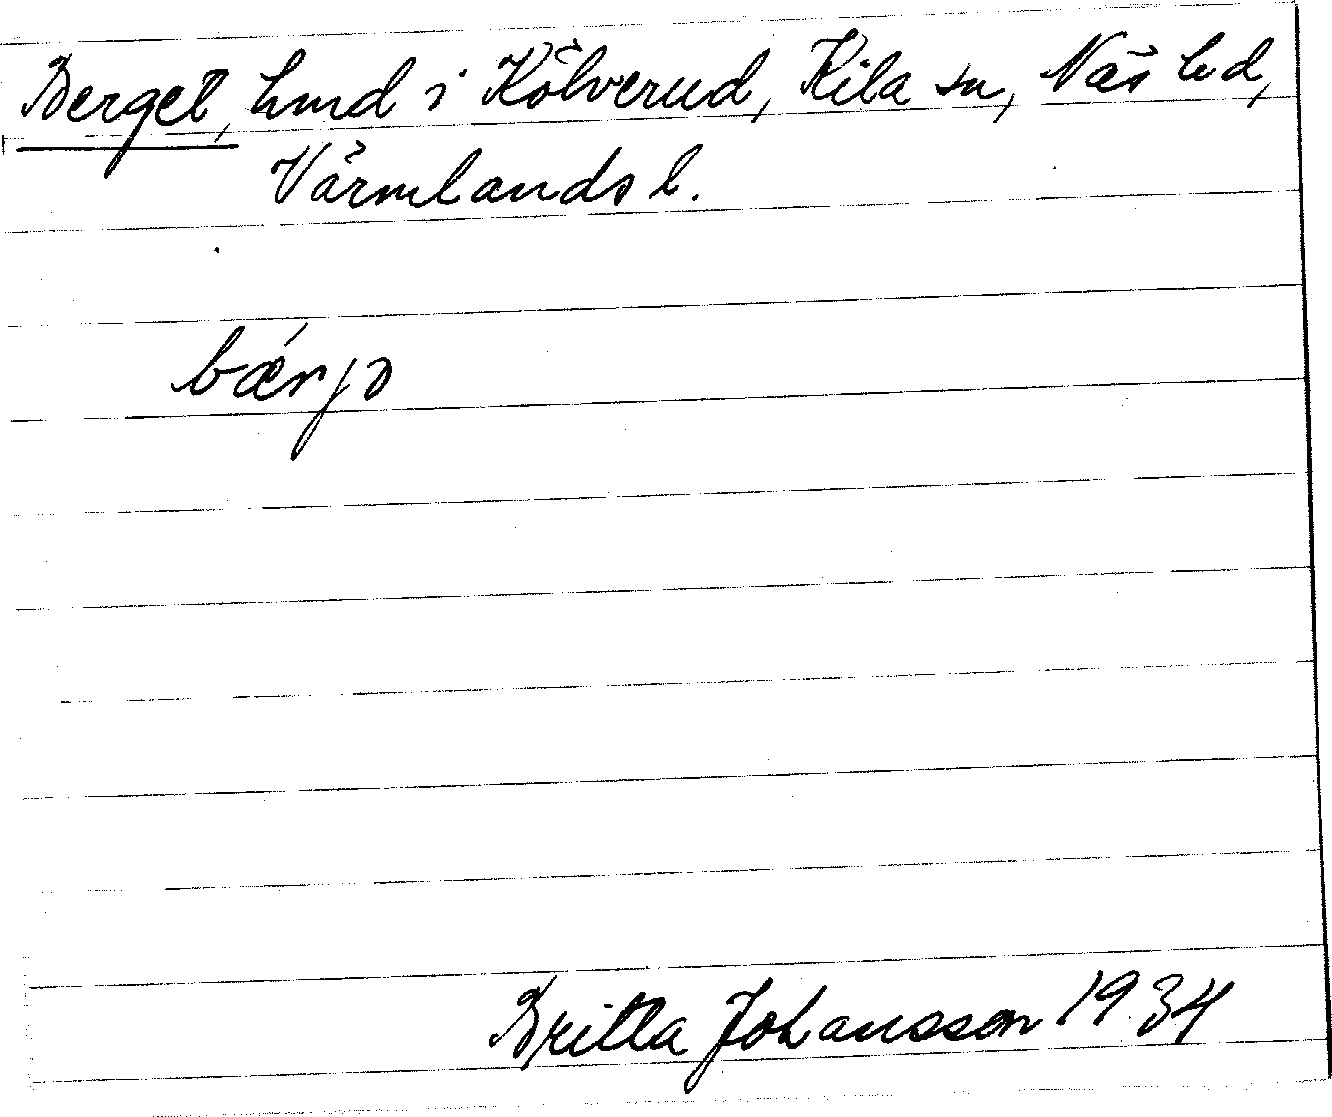 Berget, hmd i Kölverud, Kila sn, Näs hd,
Värmlands l.
bǽrjə
Britta Johansson 1934